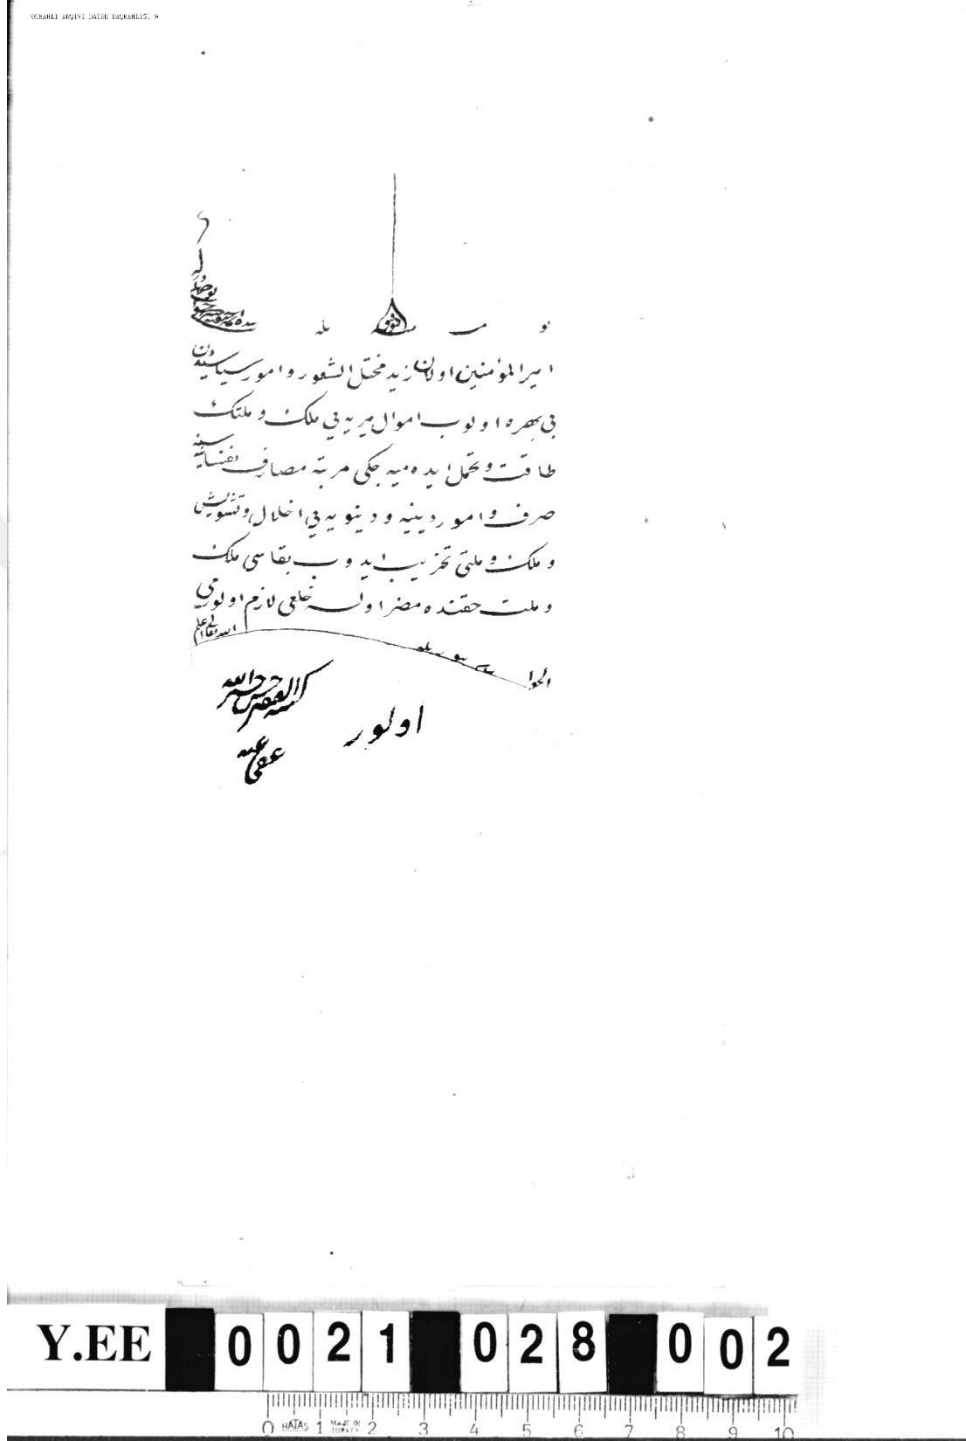 OSMANLI ARŞİVİ DAİRE BAŞKANLIĞI
امير المؤمنين اولان زيد مختل الشعور و امور سياسيه دن
بى بهره اولوب اموال ميريه يى ملك و ملتك
طاقت و تحمل ايده ميه جكى مرتبه مصارف نفسانيه سنه
صرف و امور دينيه و دنيويه يى اخلال و تشويش
و ملك و ملتى تخريب ايدوب بقاسى ملك
و ملت حقنده مضر اولسه خلعى لازم اولورمى
الله تعالى اعلم
الجواب
اولور
كتبه الفقير حسن خيرالله
عفى عنه
Y.EE 0021 028 002
0 HATAS 1 MADE IN TURKEY 2 3 4 5 6 7 8 9 10